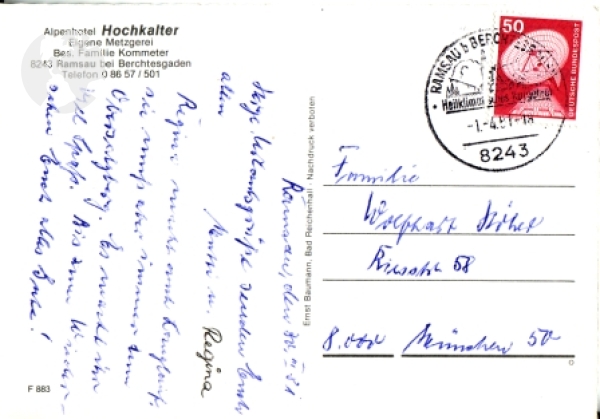 Alpenhotel Hochkalter
Eigene Metzgerei
Bes. Familie Kommeter
8243 Ramsau bei Berchtesgaden
Telefon 0 86 57 / 501
Ramsau, den 30. III 81
Herzl. Urlaubsgrüße senden Euch
allen
Mutti u. Regina
Regina macht
sie immer zum
Obersalzberg. Es macht ihr
viel Spaß. Bis zum Wieder-
sehen Euch alles Gute!
F 883
Ernst Baumann, Bad Reichenhall · Nachdruck verboten
RAMSAU b BERCHTESGADEN
Heilklimat
-1.-4.81-18
8243
50
DEUTSCHE BUNDESPOST
Familie
Wolfhart
58
8.000 München 50